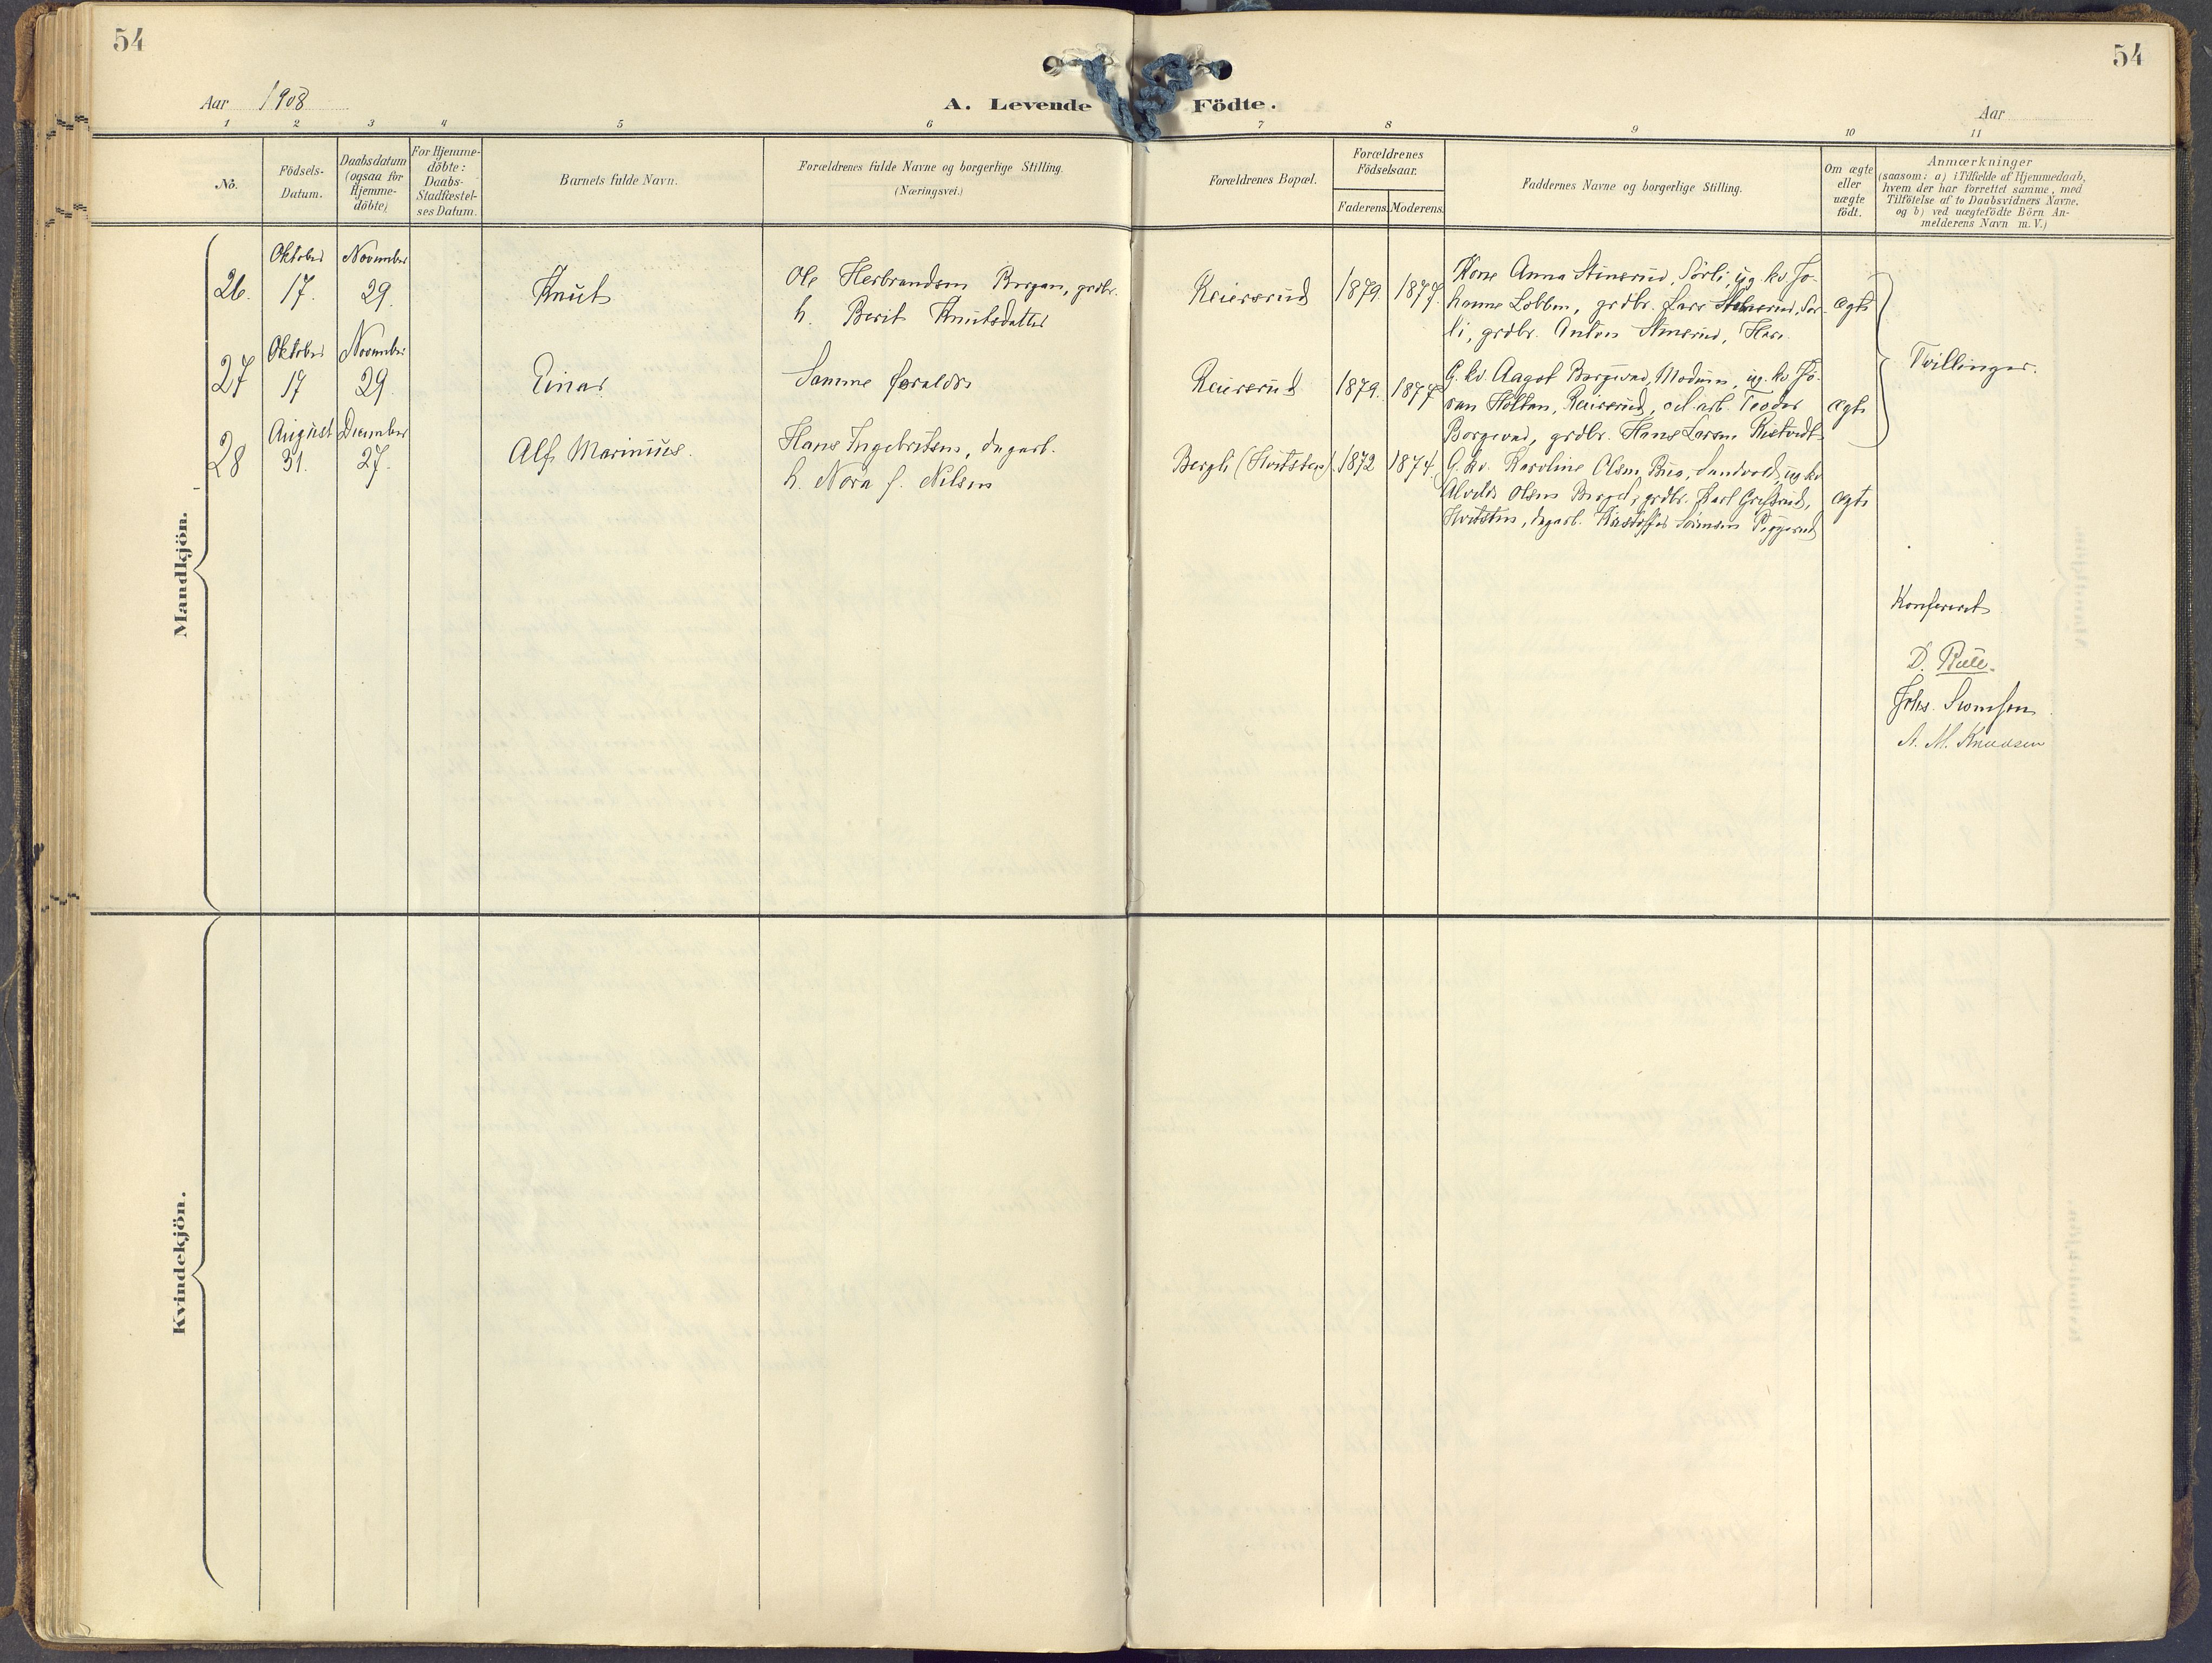 54
54
Aar 1908
A. Levende Födte.
Aar
1 2 3 4 5 6 7 8 9 10 11
No.
Födsels-
Datum.
Daabsdatum
(ogsaa for
Hjemme-
döbte)
For Hjemme-
döbte:
Daabs-
Stadfæstel-
ses Datum.
Barnets fulde Navn.
Forældrenes fulde Navne og borgerlige Stilling.
(Næringsvei.)
Forældrenes Bopæl.
Forældrenes
Födselsaar.
Faderens. Moderens.
Faddernes Navne og borgerlige Stilling.
Om ægte
eller
uægte
födt.
Anmærkninger
(saasom: a) i Tilfælde af Hjemmedaab,
hvem der har forrettet samme, med
Tilföielse af to Daabsvidners Navne,
og b) ved uægtefödte Börn An-
melderens Navn m. V.)
Mandkjön.
26.
Oktober
17.
November
29.
Knut
Ole Herbrandsen Bergan, grdbr.
h. Berit Knutsdatter
Reiersrud
1879. 1877.
Kone Anna Stensrud, Sörli, ug. kv. Jo-
hanne Lobben, grdbr. Lars Stensrud, Sör-
li, grdbr. Anton Stensrud,
ægte
27
Oktober
17
November
29.
Einar
Samme forældre
Reiersrud
1879. 1877
G. kv. Aagot Borgerud, Modum, ug. kv. Jö-
ran Holtan, Reiersrud, arb. Teodor
Borgerud, grdbr. Hans Larsen
ægte
Tvillinger.
28
August
31.
December
27.
Alf Marinius.
Hans Ingebretsen, dagarb.
h. Nora f. Nilsen
Bergli (Hvitsten)
1872 1874.
G. kv. Karoline Olsen, Sandvold, ug. kv.
Alvilde Olsen grdbr. Karl
Hvitsten, dagarb. Kristoffer Sörensen
ægte
Konfereret
D.
Johs.
A. M. Knudsen
Kvindekjön.